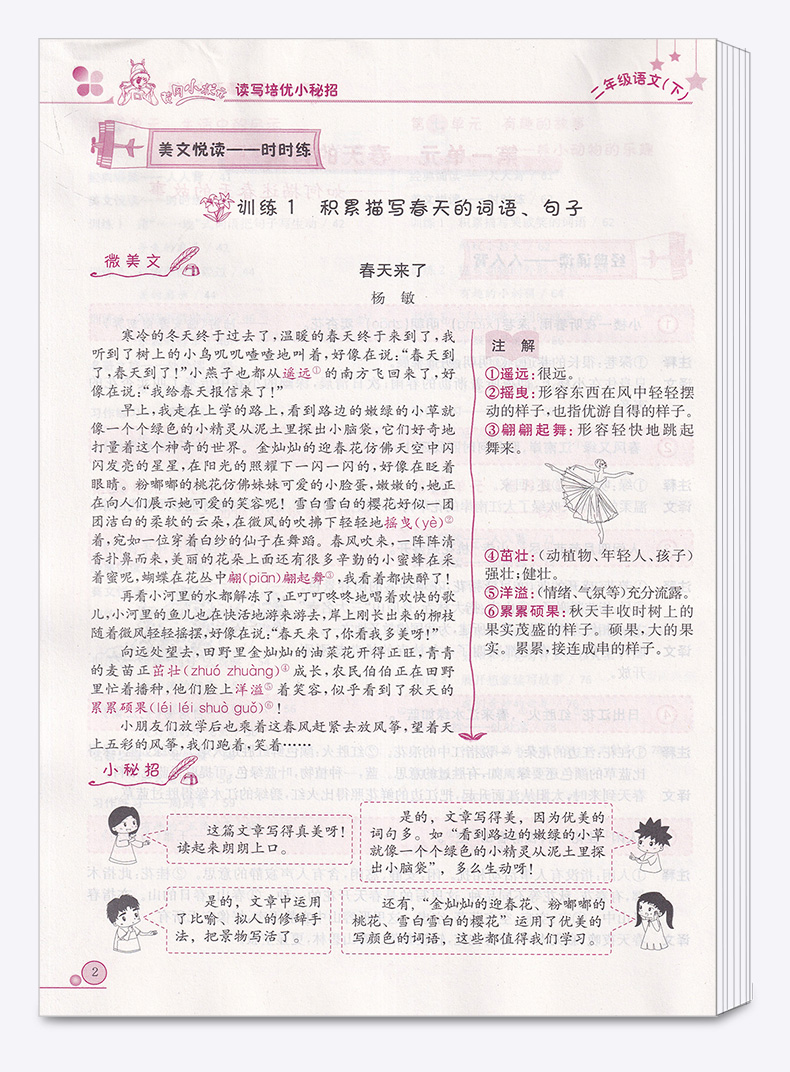 读写培优小秘招
二年级语文(下)
美文悦读——时时练
训练1 积累描写春天的词语、句子
微美文
春天来了
杨 敏
寒冷的冬天终于过去了,温暖的春天终于来到了,我
听到了树上的小鸟叽叽喳喳地叫着,好像在说:“春天到
了,春天到了!”小燕子也都从遥远①的南方飞回来了,好
像在说:“我给春天报信来了!”
早上,我走在上学的路上,看到路边的嫩绿的小草就
像一个个绿色的小精灵从泥土里探出小脑袋,它们好奇地
打量着这个神奇的世界。金灿灿的迎春花仿佛天空中闪
闪发亮的星星,在阳光的照耀下一闪一闪的,好像在眨着
眼睛。粉嘟嘟的桃花仿佛妹妹可爱的小脸蛋,嫩嫩的,她正
在向人们展示她可爱的笑容呢!雪白雪白的樱花好似一团
团洁白的柔软的云朵,在微风的吹拂下轻轻地摇曳(yè)②
着,宛如一位穿着白纱的仙子在舞蹈。春风吹来,一阵阵清
香扑鼻而来,美丽的花朵上面还有很多辛勤的小蜜蜂在采
着蜜呢,蝴蝶在花丛中翩(piān)翩起舞③,我看着都快醉了!
再看小河里的水都解冻了,正叮叮咚咚地唱着欢快的歌
儿,小河里的鱼儿也在快活地游来游去,岸上刚长出来的柳枝
随着微风轻轻摇摆,好像在说:“春天来了,你看我多美呀!”
向远处望去,田野里金灿灿的油菜花开得正旺,青青
的麦苗正茁壮(zhuó zhuàng)④成长,农民伯伯正在田野
里忙着播种,他们脸上洋溢⑤着笑容,似乎看到了秋天的
累累硕果(léi léi shuò guǒ)⑥!
小朋友们放学后也乘着这春风赶紧去放风筝,望着天
上五彩的风筝,我们跑着,笑着……
注 解
①遥远:很远。
②摇曳:形容东西在风中轻轻摆
动的样子,也指优游自得的样子。
③翩翩起舞:形容轻快地跳起
舞来。
④茁壮:(动植物、年轻人、孩子)
强壮;健壮。
⑤洋溢:(情绪、气氛等)充分流露。
⑥累累硕果:秋天丰收时树上的
果实茂盛的样子。硕果,大的果
实。累累,接连成串的样子。
小秘招
这篇文章写得真美呀!
读起来朗朗上口。
是的,文章写得美,因为优美的
词句多。如“看到路边的嫩绿的小草
就像一个个绿色的小精灵从泥土里探
出小脑袋”,多么生动呀!
是的,文章中运用
了比喻、拟人的修辞手
法,把景物写活了。
还有,“金灿灿的迎春花、粉嘟嘟的
桃花、雪白雪白的樱花”运用了优美的
写颜色的词语,这些都值得我们学习。
2